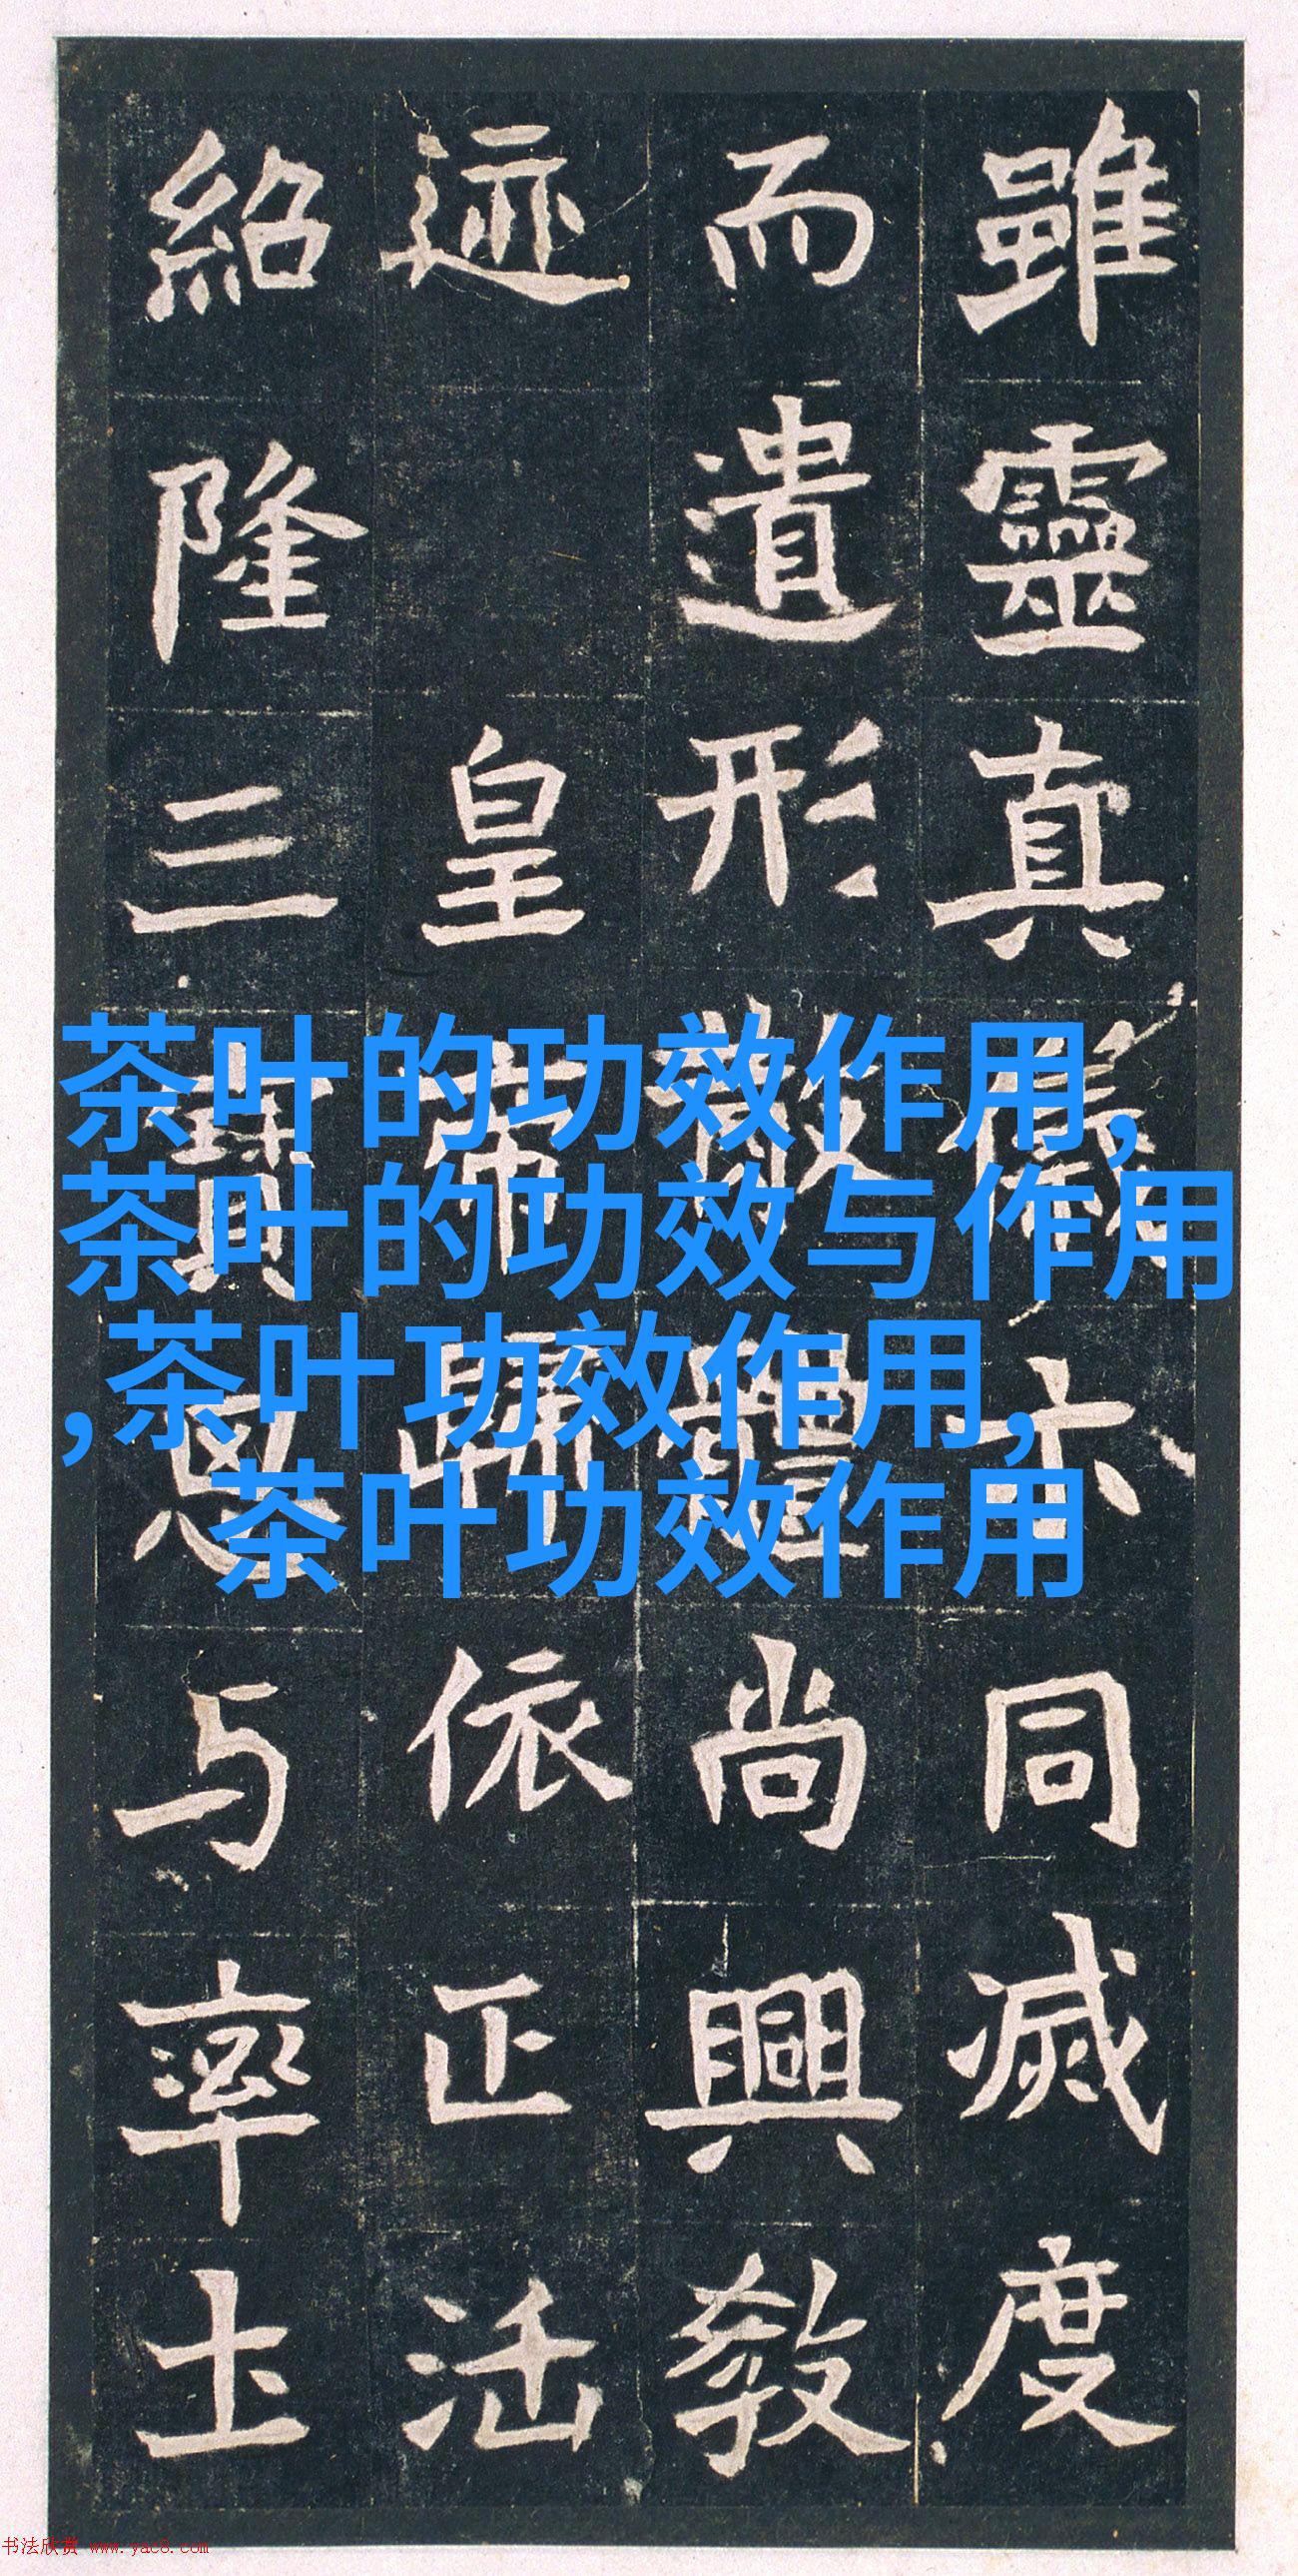 雖靈真儀同滅度
而遺形體尚興教
迹皇帝歸依正法
紹隆三寶思与率土
茶叶的功效作用,
茶叶的功效与作用
,茶叶功效作用,
茶叶功效作用
书法欣赏 www.yac8.com